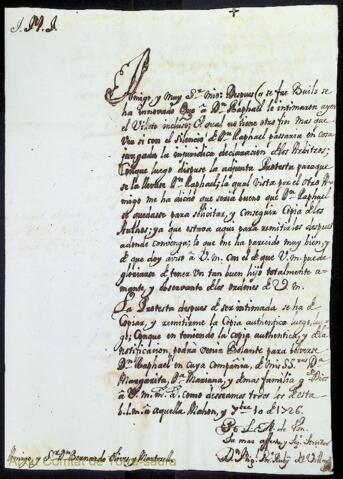 Amigo, y muy Sr. mio: Despues q se fue Guils se
ha innovado que à Dn. Raphael le intimaron ayer
el Villete incluso; el qual no tiene otro fin mas que
ver si con el silencio de Dn. Raphael passaria en cosa
juzgada la injuridica declaracion de los Arbitros;
Conque luego dispuse la adjunta Protesta paraque
se la llevase Dn. Raphael; la qual vista por el otro A-
migo me ha dicho que seria bueno que Dn. Raphael
se quedasse para solicitar, y conseguir Copia de los
Autos; ya que estava aqui para remitirlos despues
adonde convenga; lo que me ha parecido muy bien, y
de que doy aviso à V.m. Con el de que V.m. puede
gloriarse de tener un tan buen hijo totalmente a-
mante, y observante de los ordenes de V.m.
La Protesta despues de ser intimada se ha de
Copiar, y remitirme la Copia authentica luego, lue-
go; Conque en teniendo la copia authentica, y de la
notificacion, podrà venir Bosiante para bolverse
Dn. Raphael en cuya compania, de mis SS.ras Da.
Margarita, Da. Mariana, y demas familia gde. Dios
à V.m. m. a. como desseamos todos los de esta
de aquella Mahon, y 10 de 1726.
B. L. M. de V.m.
Su mas afecto, y Sr.
Amigo, y Sr. Dn. Bernardo Olives y Martorell